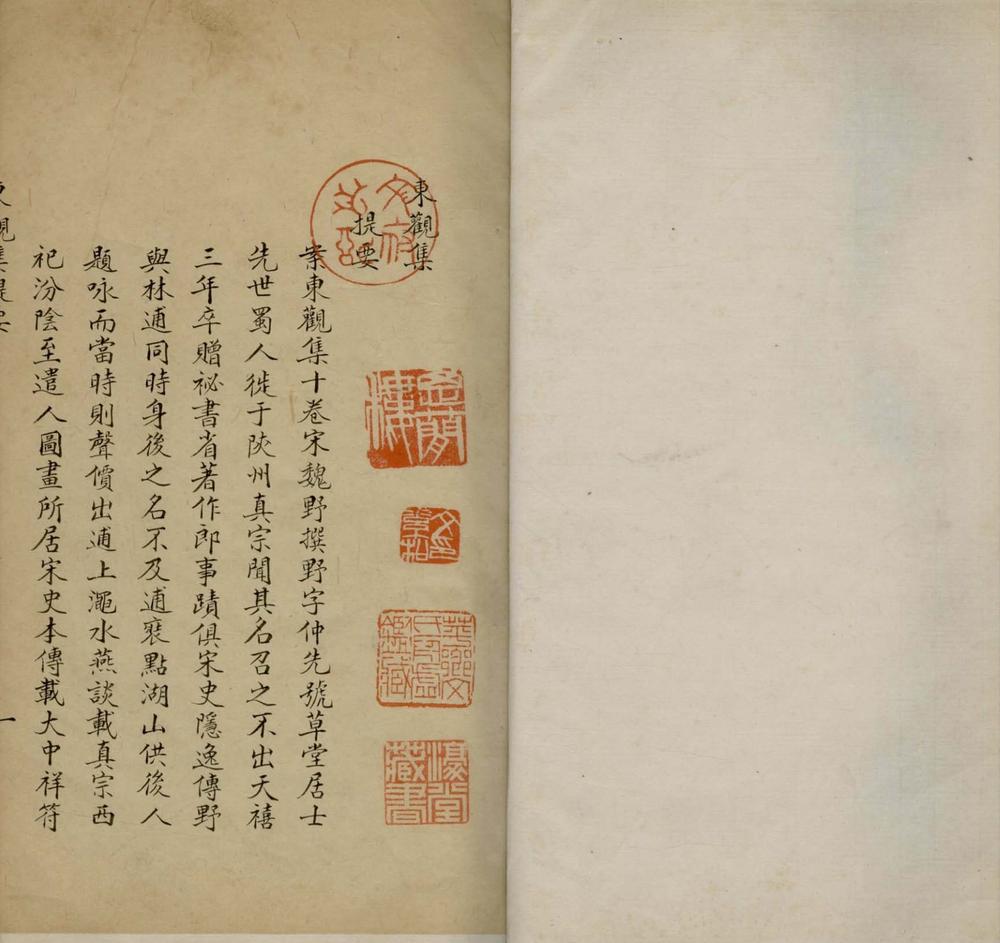 東觀集
提要
案東觀集十卷宋魏野撰野字仲先號草堂居士
先世蜀人徙于陝州真宗聞其名召之不出天禧
三年卒贈祕書省著作郎事蹟俱宋史隱逸傳野
與林逋同時身後之名不及逋裝點湖山供後人
題咏而當時則聲價出逋上澠水燕談載真宗西
祀汾陰至遣人圖畫所居宋史本傳載大中祥符
東觀集提要
一
藏書